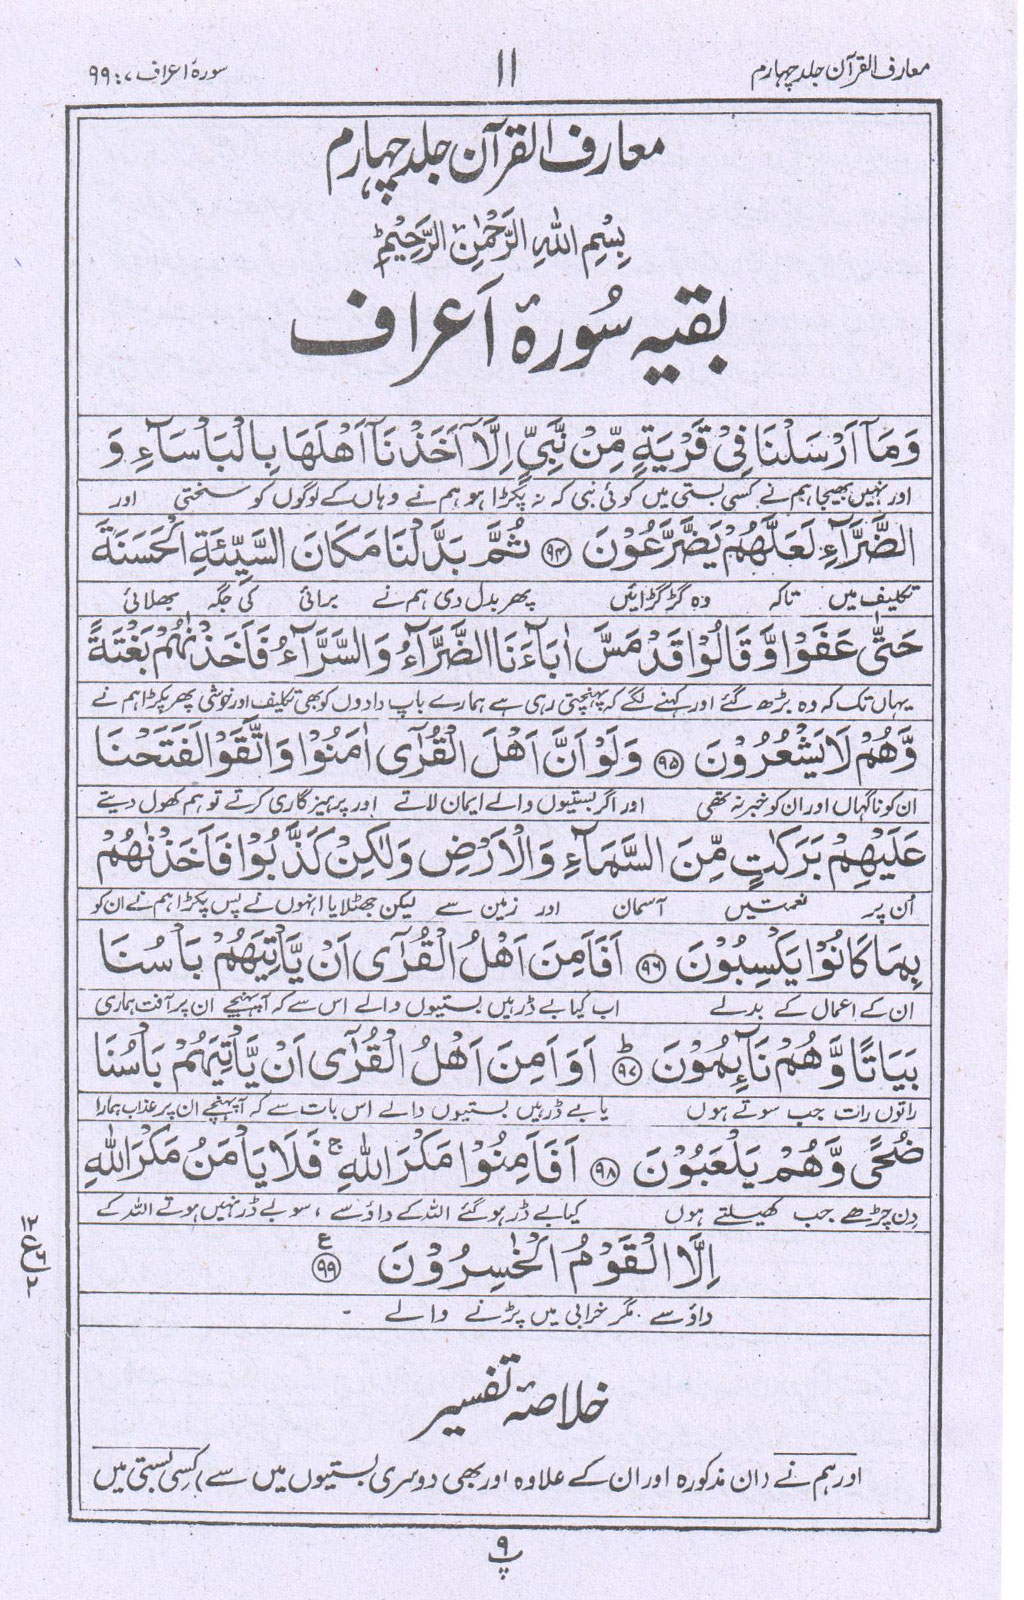 معارف القرآن جلد چہارم
۱۱
سورۂ اعراف ۷ : ۹۹
معارف القرآن جلد چہارم
بِسْمِ اللّٰهِ الرَّحْمٰنِ الرَّحِيْمِؕ
بقیہ سُورۂ اَعراف
وَمَآ اَرْسَلْنَا فِىْ قَرْيَةٍ مِّنْ نَّبِىٍّ اِلَّآ اَخَذْنَآ اَهْلَهَا بِالْبَاْسَآءِ وَ
اور نہیں بھیجا ہم نے کسی بستی میں کوئی نبی کہ نہ پکڑا ہو ہم نے وہاں کے لوگوں کو سختی اور
الضَّرَّآءِ لَعَلَّهُمْ يَضَّرَّعُوْنَ ﴿۹۴﴾ ثُمَّ بَدَّلْنَا مَكَانَ السَّيِّئَةِ الْحَسَنَةَ
تکلیف میں تاکہ وہ گڑگڑائیں پھر بدل دی ہم نے برائی کی جگہ بھلائی
حَتّٰى عَفَوْا وَّ قَالُوْا قَدْ مَسَّ اٰبَآءَنَا الضَّرَّآءُ وَالسَّرَّآءُ فَاَخَذْنٰهُمْ بَغْتَةً
یہاں تک کہ وہ بڑھ گئے اور کہنے لگے کہ پہنچتی رہی ہے ہمارے باپ دادوں کو بھی تکلیف اور خوشی پھر پکڑا ہم نے
وَّهُمْ لَا يَشْعُرُوْنَ ﴿۹۵﴾ وَلَوْ اَنَّ اَهْلَ الْقُرٰٓى اٰمَنُوْا وَاتَّقَوْا لَفَتَحْنَا
ان کو ناگہاں اور ان کو خبر نہ تھی اور اگر بستیوں والے ایمان لاتے اور پرہیزگاری کرتے تو ہم کھول دیتے
عَلَيْهِمْ بَرَكٰتٍ مِّنَ السَّمَآءِ وَالْاَرْضِ وَلٰكِنْ كَذَّبُوْا فَاَخَذْنٰهُمْ
اُن پر نعمتیں آسمان اور زمین سے لیکن جھٹلایا انہوں نے پس پکڑا ہم نے ان کو
بِمَا كَانُوْا يَكْسِبُوْنَ ﴿۹۶﴾ اَفَاَمِنَ اَهْلُ الْقُرٰٓى اَنْ يَّاْتِيَهُمْ بَاْسُنَا
ان کے اعمال کے بدلے اب کیا بے ڈر ہیں بستیوں والے اس سے کہ آ پہنچے ان پر آفت ہماری
بَيَاتًا وَّهُمْ نَآئِمُوْنَ ﴿۹۷﴾ؕ اَوَ اَمِنَ اَهْلُ الْقُرٰٓى اَنْ يَّاْتِيَهُمْ بَاْسُنَا
راتوں رات جب سوتے ہوں یا بے ڈر ہیں بستیوں والے اس بات سے کہ آ پہنچے ان پر عذاب ہمارا
ضُحًى وَّهُمْ يَلْعَبُوْنَ ﴿۹۸﴾ اَفَاَمِنُوْا مَكْرَ اللّٰهِ ۚ فَلَا يَاْمَنُ مَكْرَ اللّٰهِ
دن چڑھے جب کھیلتے ہوں کیا بے ڈر ہوگئے اللہ کے داؤ سے ، سو بے ڈر نہیں ہوتے اللہ کے
اِلَّا الْقَوْمُ الْخٰسِرُوْنَ ﴿۹۹﴾ ع
داؤ سے مگر خرابی میں پڑنے والے ۔
۱۲ ع ۲
خلاصۂ تفسیر
اور ہم نے (ان مذکورہ اور ان کے علاوہ اور بھی دوسری بستیوں میں سے) کسی بستی میں
۹
پ